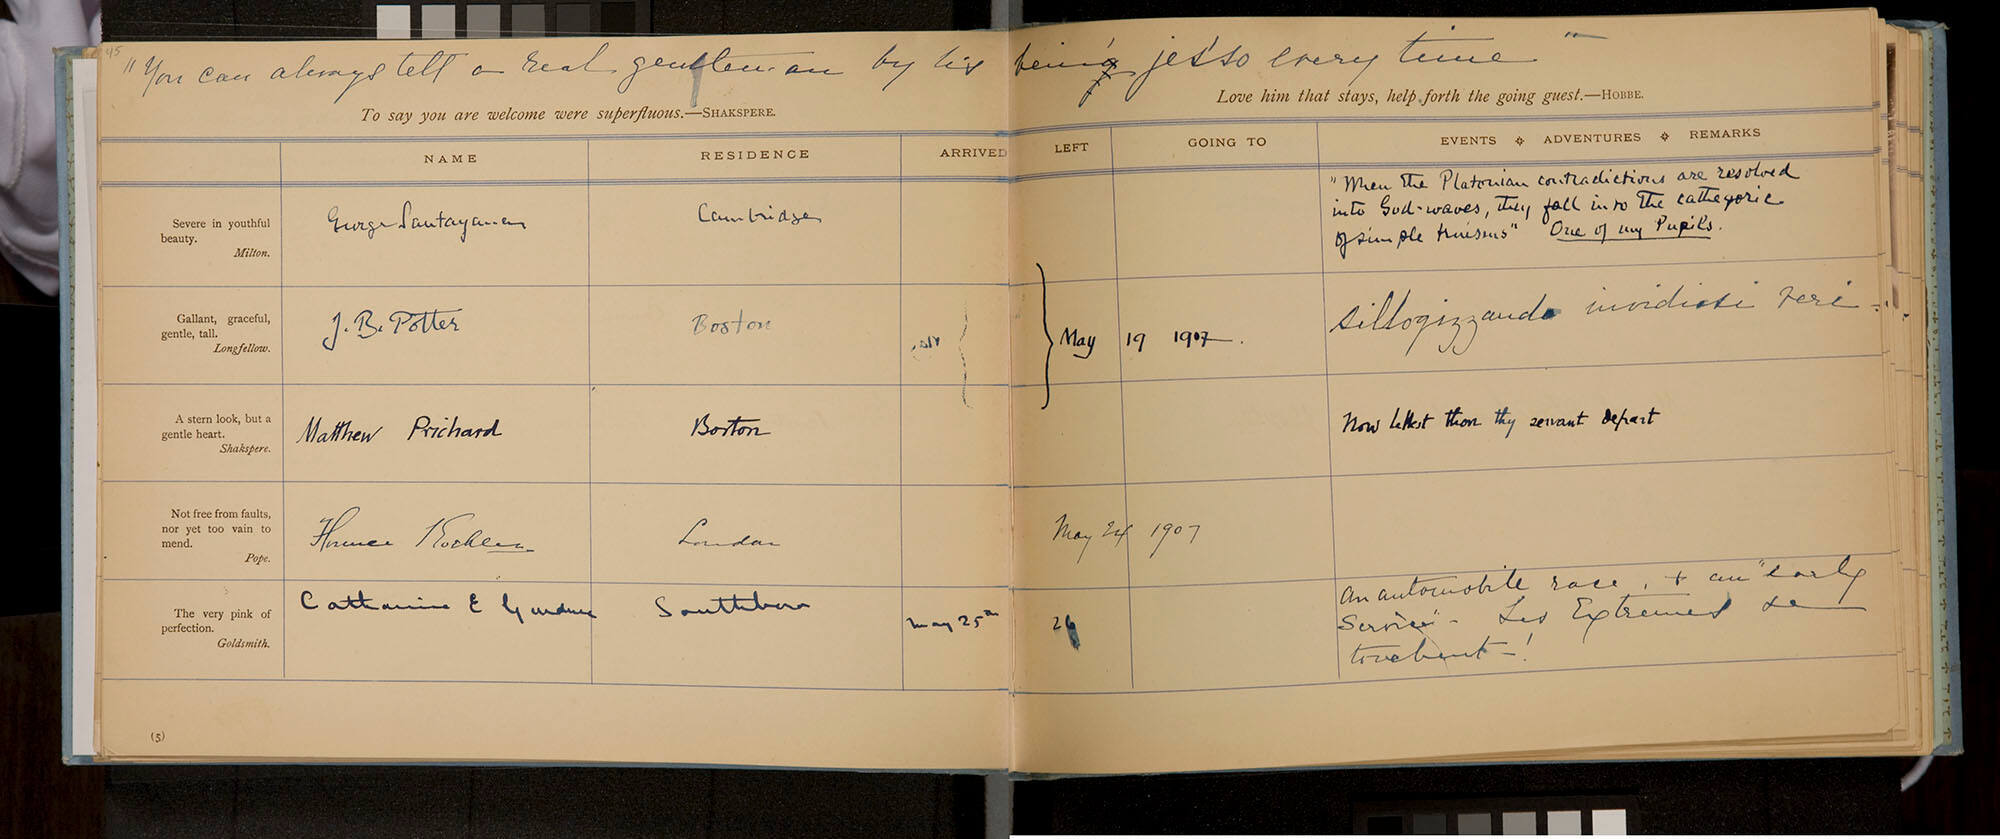 45
"You can always tell a real gentleman by his being jes'so every time"
To say you are welcome were superfluous.—SHAKSPERE.
Love him that stays, help forth the going guest.—HOBBE.
NAME RESIDENCE ARRIVED LEFT GOING TO EVENTS ADVENTURES REMARKS
Severe in youthful
beauty.
Milton.
George Santayana Cambridge
"When the Platonian contradictions are resolved
into God-waves, they fall into the cathegoric
of simple truisms" One of my Pupils.
Gallant, graceful,
gentle, tall.
Longfellow.
J. B. Potter Boston May 19 1907.
sillogizzando invidiosi veri
A stern look, but a
gentle heart.
Shakspere.
Matthew Prichard Boston
Now lettest thou thy servant depart
Not free from faults,
nor yet too vain to
mend.
Pope.
London May 24 1907
The very pink of
perfection.
Goldsmith.
Catharine E Gardner Southboro May 25th 26
An automobile race, + an "early
Service" - Les Extremes se
touchent-!
(5)